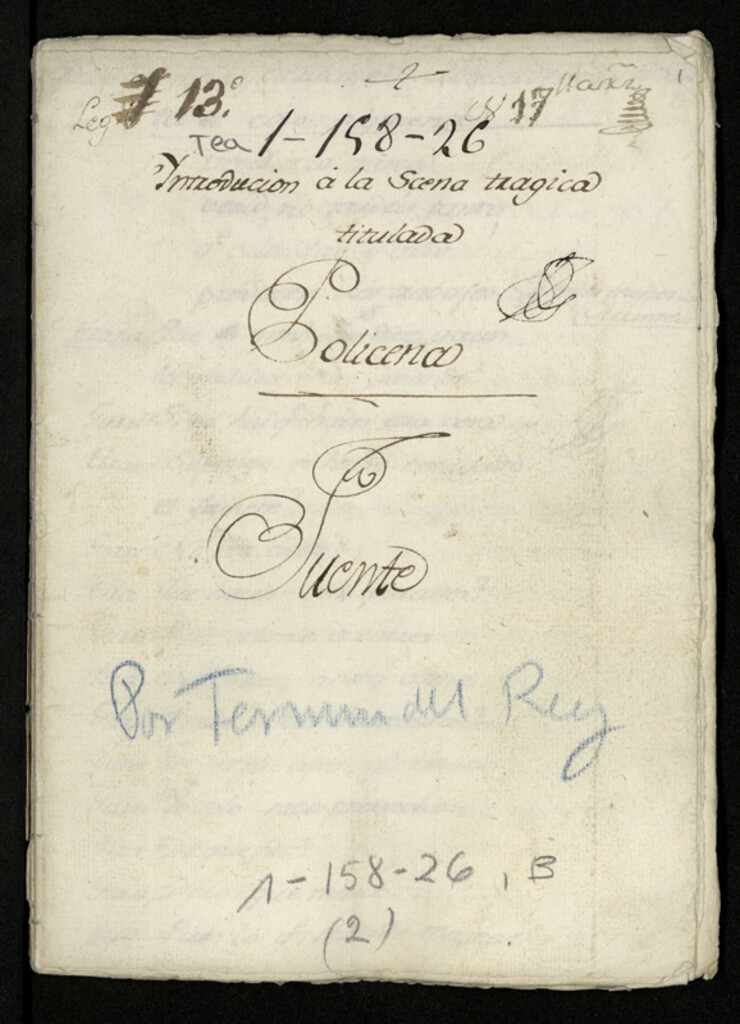 Leg 13.º
Tea 1-158-26
Introducion á la Scena tragica
titulada
Policena
Fuente
Por Fermin del Rey
1-158-26, B
(2)